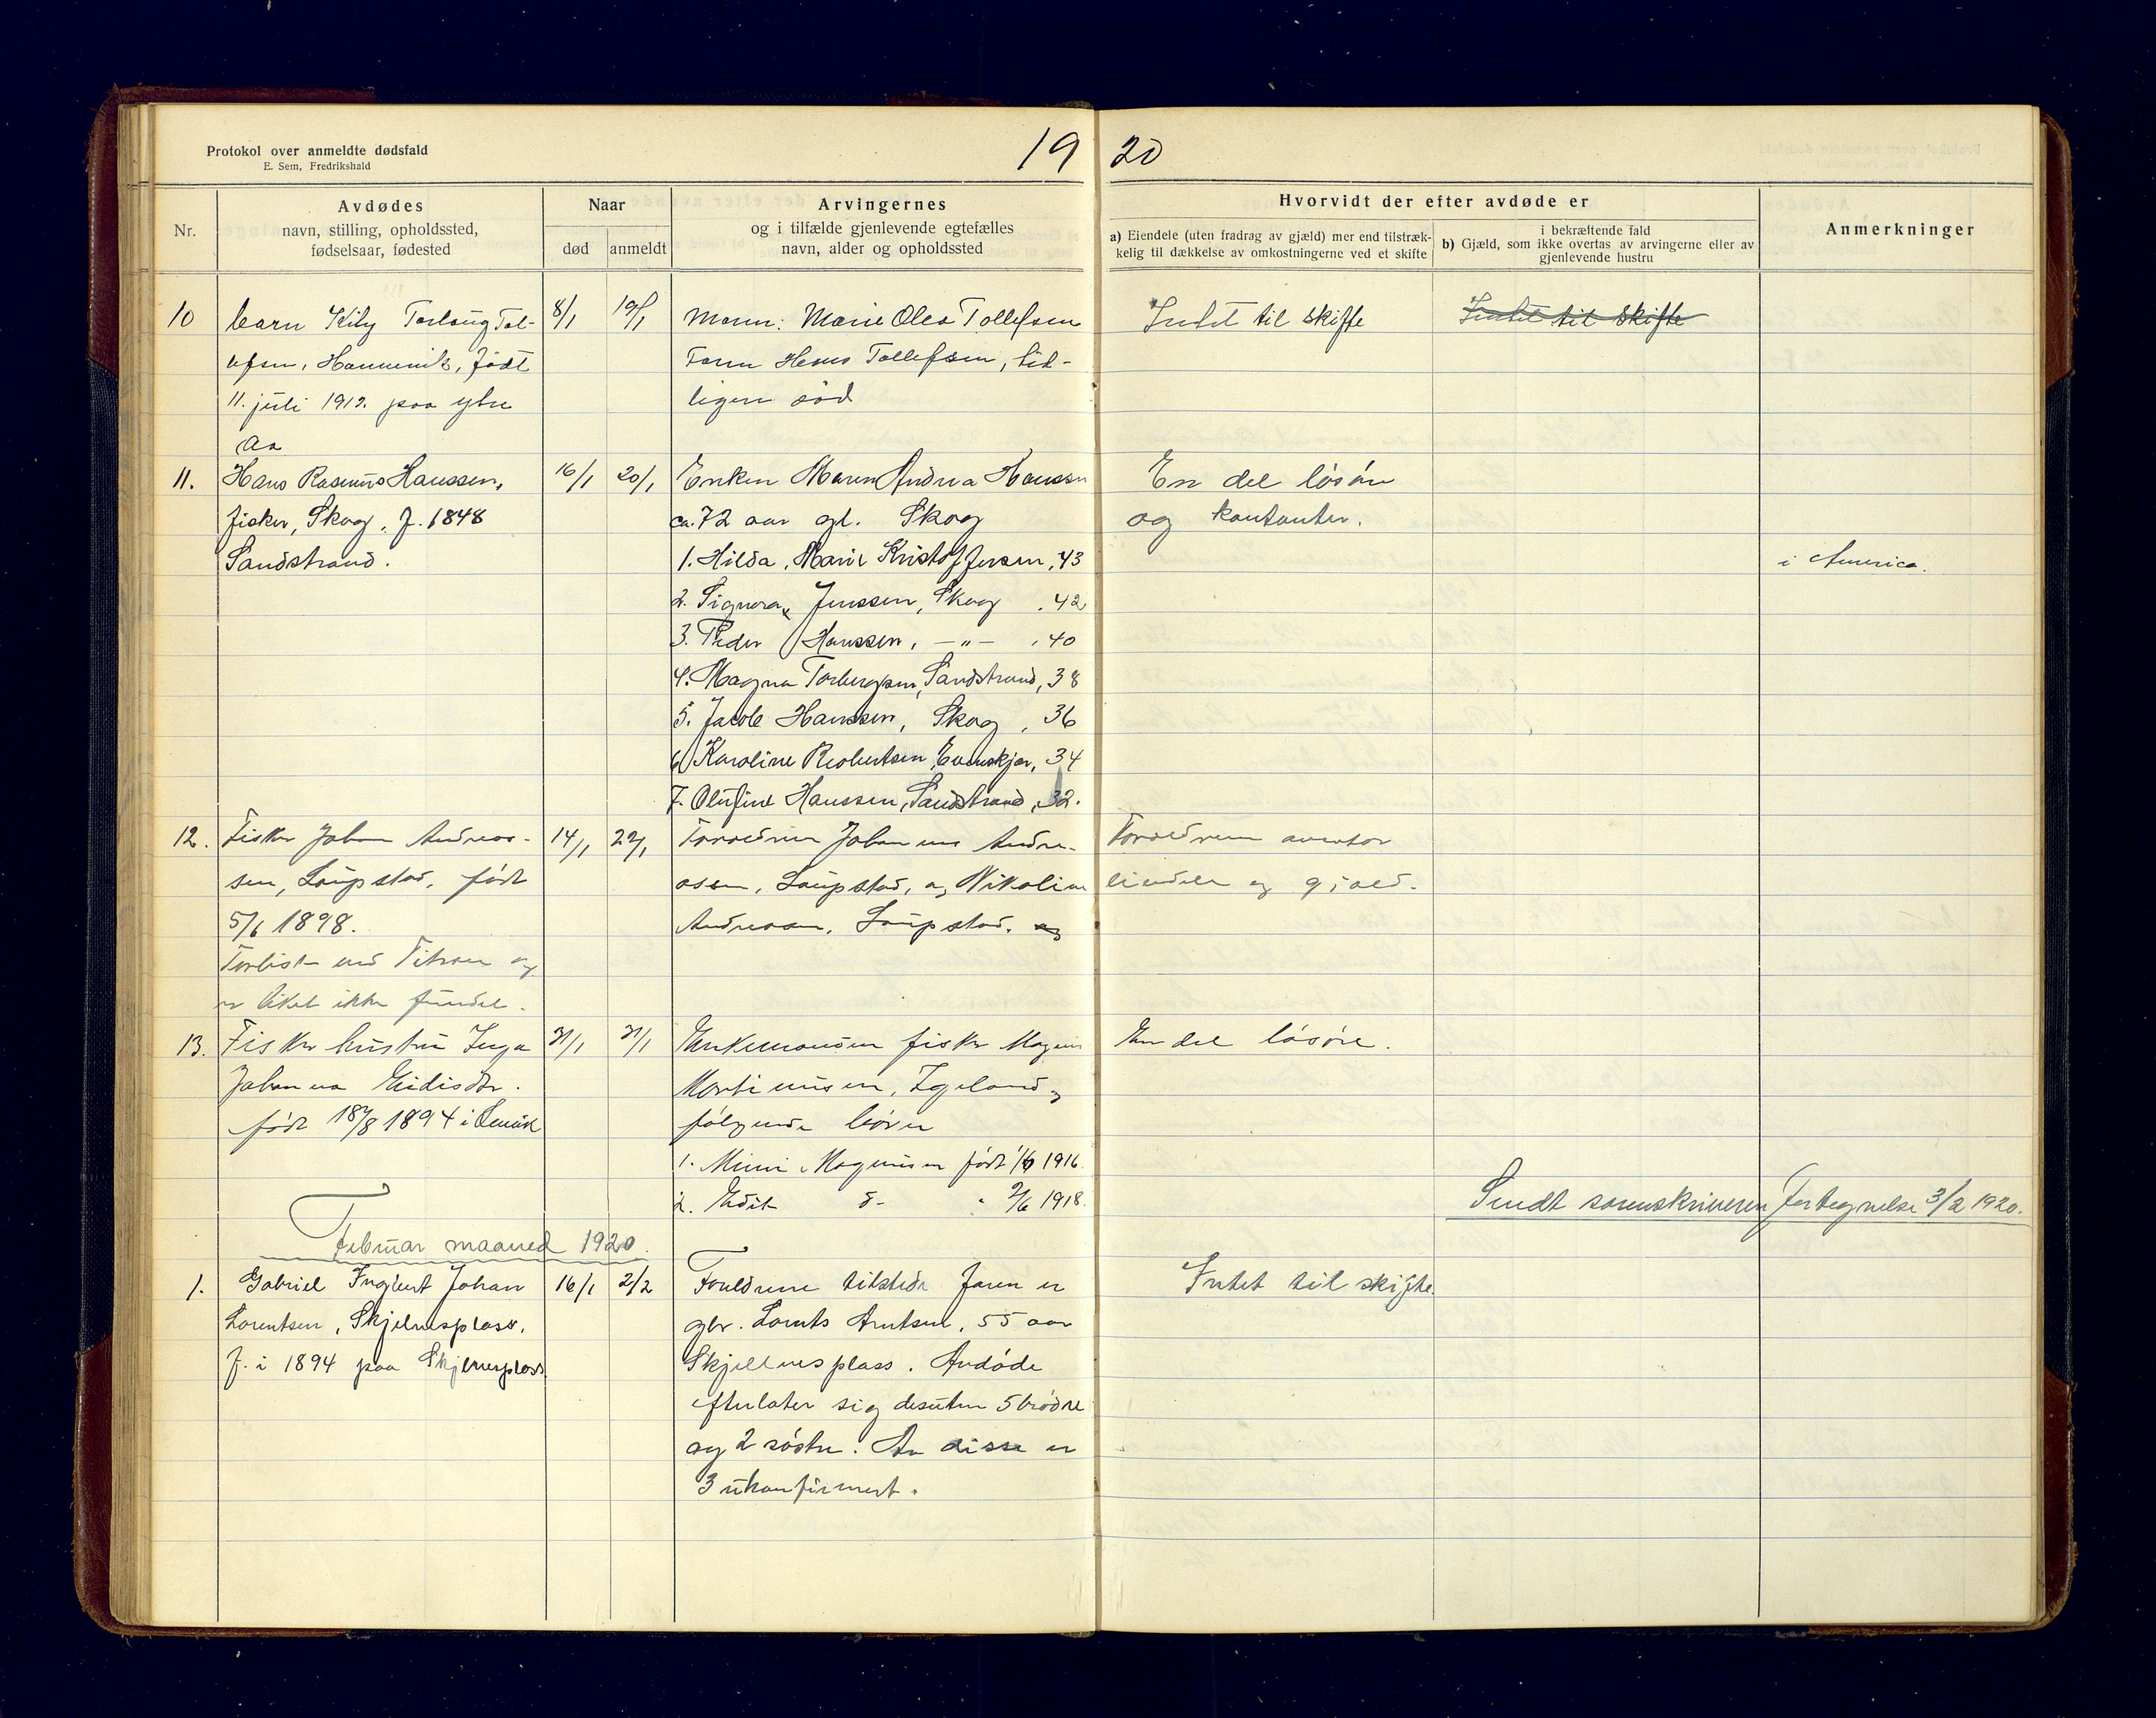 Protokol over anmeldte dødsfald
E. Sem, Fredrikshald
19 20
Nr.
Avdødes
navn, stilling, opholdssted,
fødselsaar, fødested
Naar
død
anmeldt
Arvingernes
og i tilfælde gjenlevende egtefælles
navn, alder og opholdssted
Hvorvidt der efter avdøde er
a) Eiendele (uten fradrag av gjæld) mer end tilstræk-
kelig til dækkelse av omkostningerne ved et skifte
i bekræftende fald
b) Gjæld, som ikke overtas av arvingerne eller av
gjenlevende hustru
Anmerkninger
10 barn Kity Torlaug Tol-
lefsen, Hamnvik, født
11. juli 1912. paa ytre
Aa
8/1 19/1
Moren: Marie Olea Tollefsen
Faren Hans Tollefsen, tid-
ligere død
Intet til skifte
Intet til skifte
11. Hans Rasmus Hanssen,
fisker, Skog. f. 1848
Sandstrand.
16/1 20/1
Enken Maren Andrea Hanssen
ca. 72 aar gl. Skog
1. Hilda Marie Kristoffersen, 43
2. Signora Jenssen, Skog . 42
3. Peder Hanssen, -"- , 40
4. Magna Torbergsen, Sandstrand, 38
5. Jacob Hanssen, Skog , 36
6 Karoline Robertsen, Evenskjær, 34
7. Olufine Hanssen, Sandstrand, 32.
En del løsøre
og kontanter.
i America.
12. Fisker Johan Andreas-
sen, Laupstad, født
5/6 1898.
Forlist ved Titran og
er liket ikke fundet.
14/1 22/1
Forældrene Johannes Andre-
assen, Laupstad, og Nikoline
Andreassen, Laupstad. og
Forældrene overtar
eiendele og gjæld.
13. Fisker hustru Inga
Johanna Eidisdtr.
født 18/8 1894 i Lenvik
21/1 31/1
Enkemanden fisker Magnus
Martinussen, Igeland og
følgende børn
1. Mimi Magnussen født 1/6 1916.
2. Edit d- " 2/6 1918.
En del løsøre.
Sendt sorenskriveren fortegnelse 3/2 1920.
Februar maaned 1920.
1. Gabriel Ingbert Johan
Lorentsen, Skjelnesplass,
f. i 1894 paa Skjelnesplass
16/1 2/2
Foreldrene tilstede Faren er
gbr. Lorents Arntsen, 55 aar
Skjellnesplass. Avdøde
efterlater sig desuten 5 brødre
og 2 søstre. Av disse er
3 ukonfirmert.
Intet til skifte.